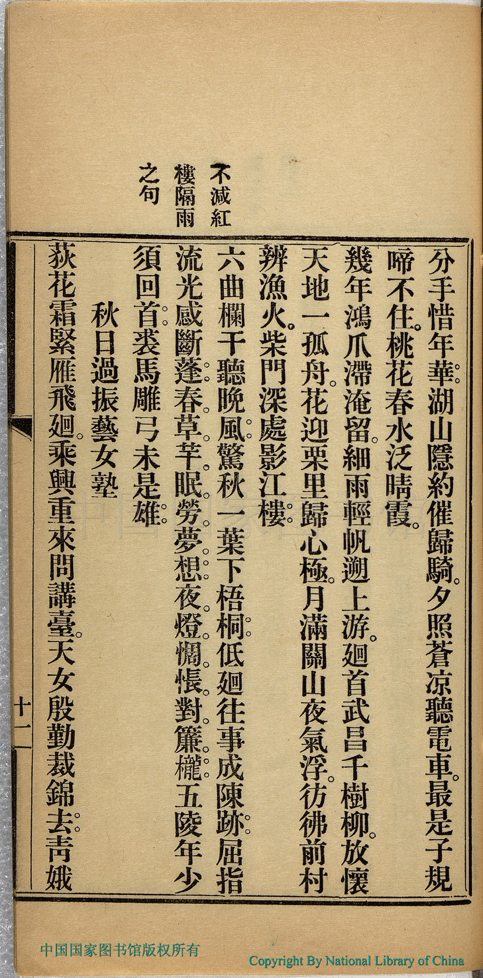 不減紅
樓隔雨
之句
分手惜年華湖山隱約催歸騎夕照蒼凉聽電車最是子規
啼不住桃花春水泛晴霞
幾年鴻爪滯淹留細雨輕帆遡上游廻首武昌千樹柳放懷
天地一孤舟花迎栗里歸心極月滿關山夜氣浮彷彿前村
辨漁火柴門深處影江樓
六曲欄干聽晚風驚秋一葉下梧桐低廻往事成陳跡屈指
流光感斷蓬春草芊眠勞夢想夜燈惆悵對簾櫳五陵年少
須回首裘馬雕弓未是雄
秋日過振藝女塾
荻花霜緊雁飛廻乘興重來問講臺天女殷勤裁錦去靑娥
十一
中国国家图书馆版权所有
Copyright By National Library of China